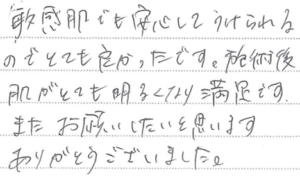 敏感肌でも安心してうけられる
のでとても良かったです。施術後
肌がとても明るくなり満足です.
またお願いしたいと思います
ありがとうございました。